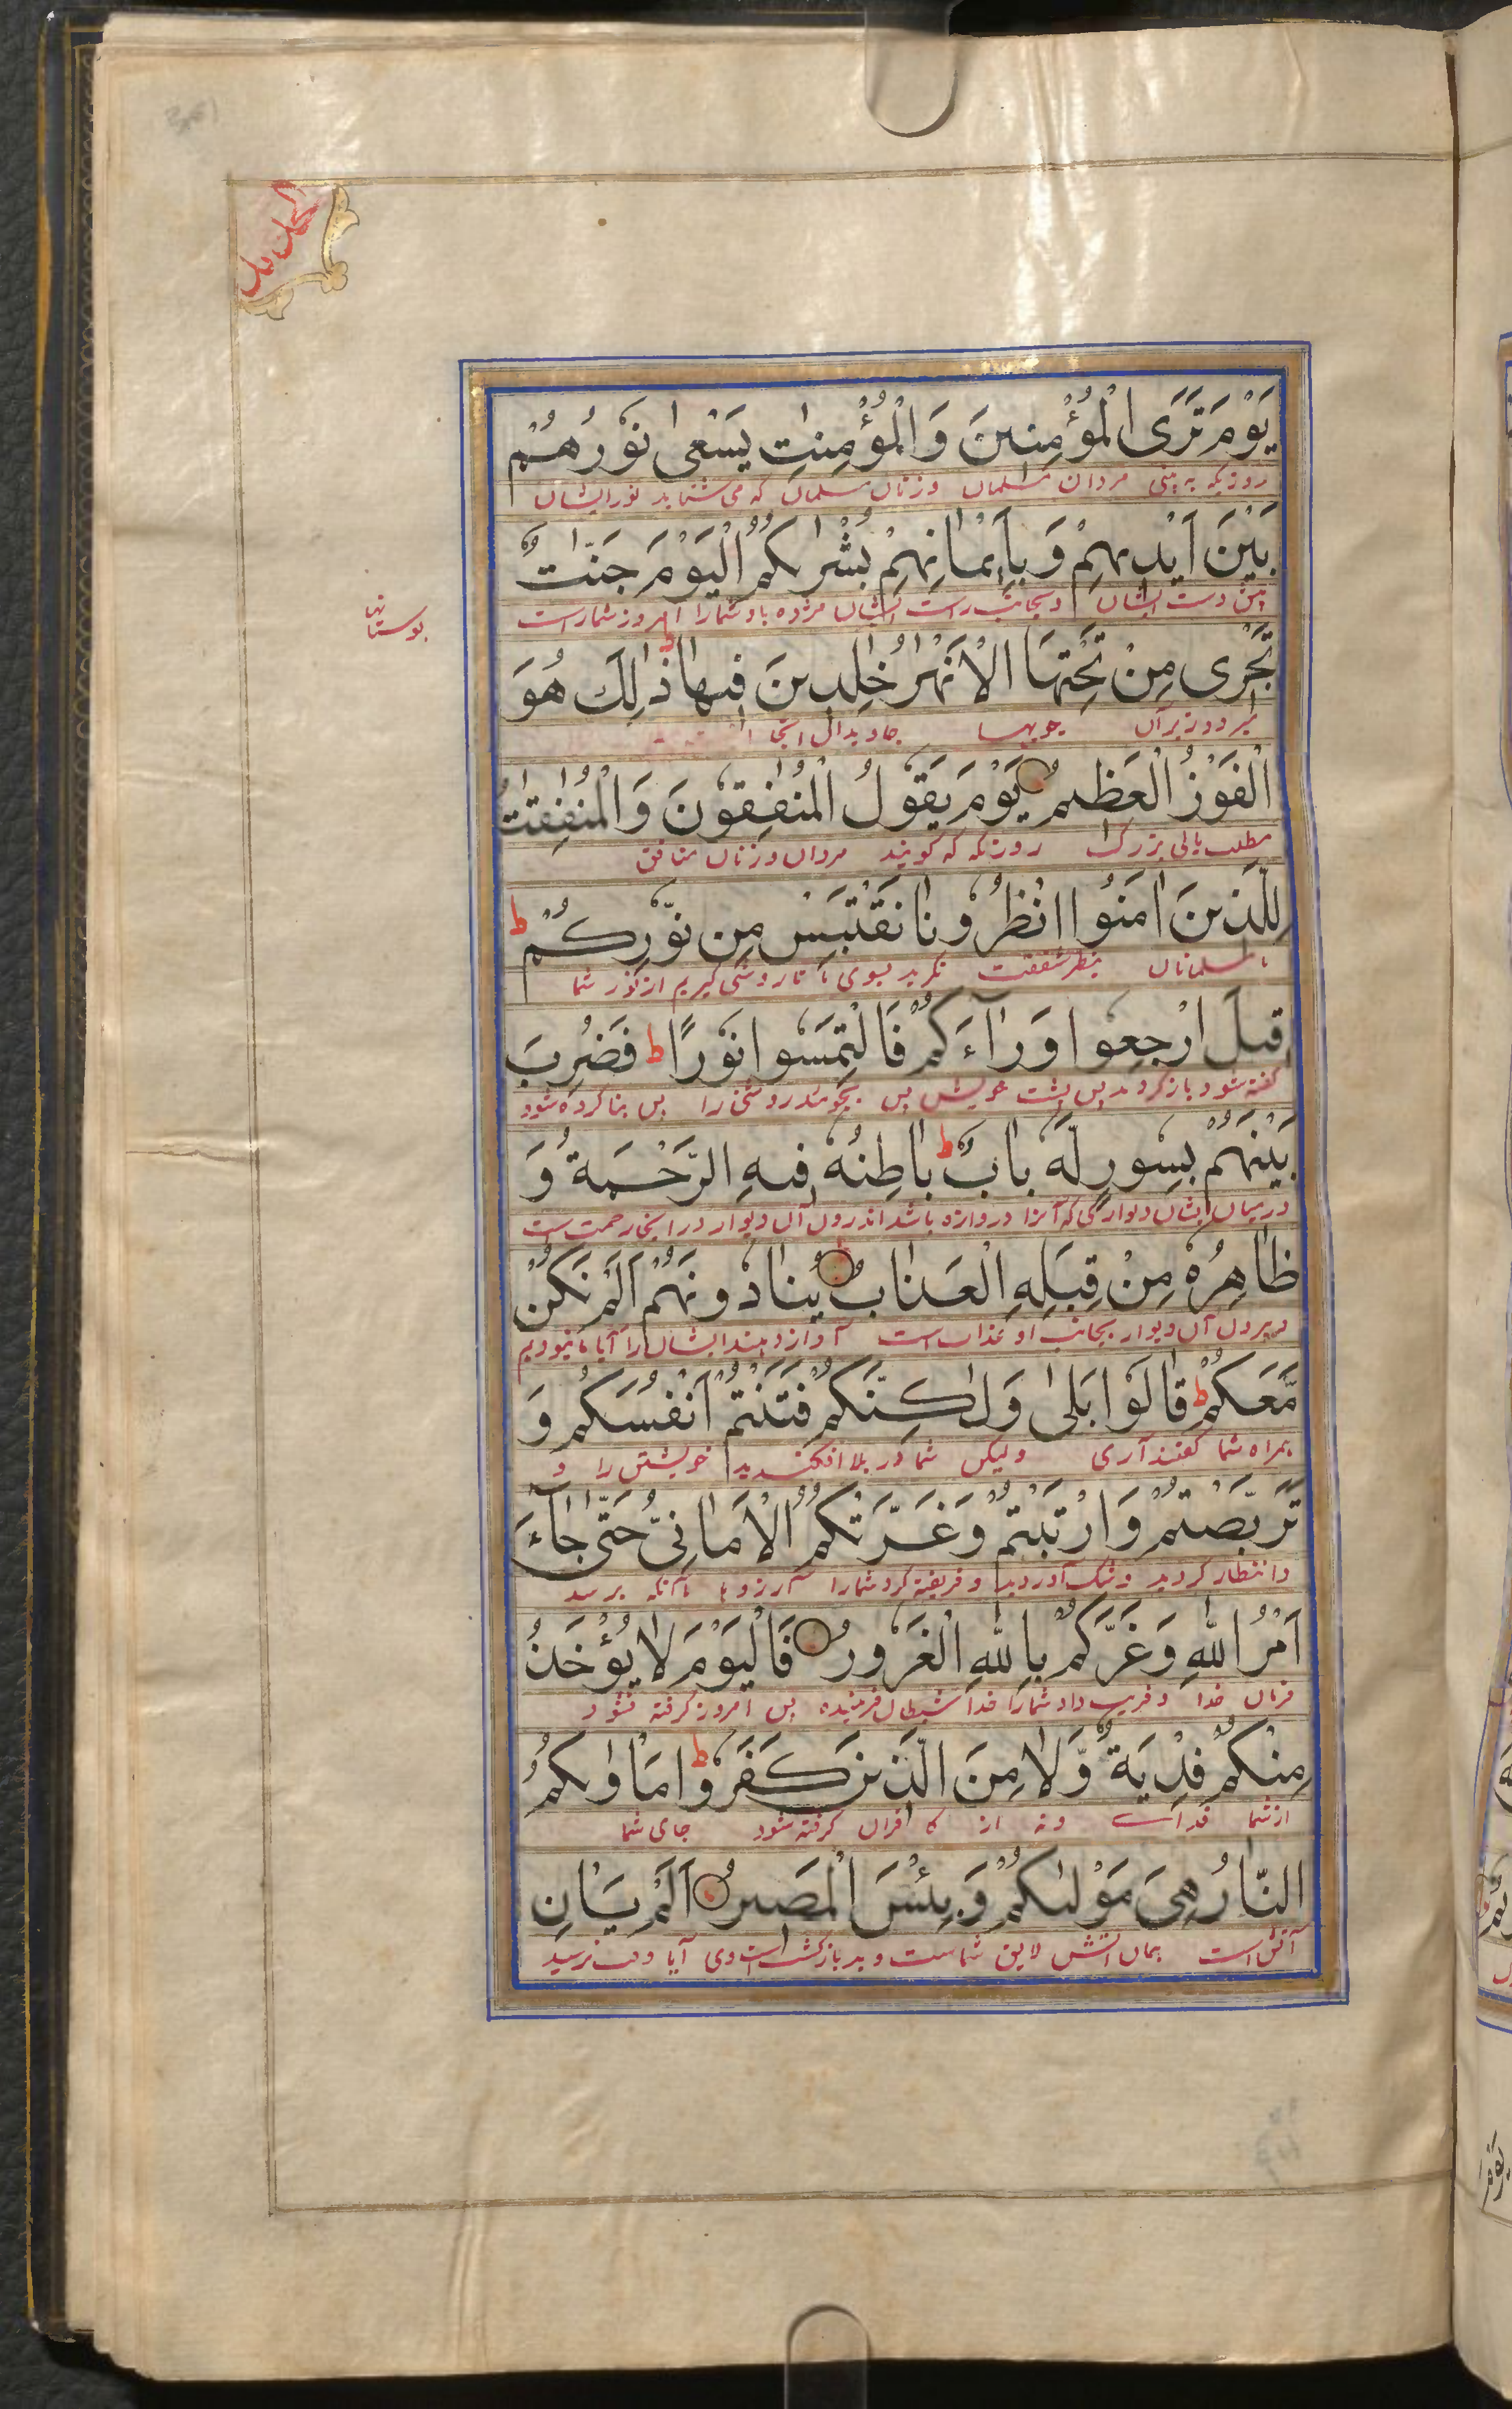 يَوْمَ تَرَى الْمُؤْمِنِينَ وَالْمُؤْمِنٰتِ يَسْعٰى نُوْرُهُمْ
روزیکه به بینی مردان مسلمان و زنان مسلمان که می شتابد نور ایشان
بَيْنَ اَيْدِيهِمْ وَبِاَيْمٰانِهِمْ بُشْرٰىكُمُ الْيَوْمَ جَنّٰاتٌ
پیش دست ایشان و بجانب راست ایشان مژده باد شما را امروز شما راست
بوستانها
تَجْرِى مِنْ تَحْتِهَا الْاَنْهٰرُ خٰلِدِينَ فِيهٰا ذٰلِكَ هُوَ
میرود زیر آن جویها جاویدان اینجا
الْفَوْزُ الْعَظِيمُ يَوْمَ يَقُوْلُ الْمُنٰفِقُوْنَ وَالْمُنٰفِقٰتُ
مطلب یابی بزرگ روزیکه که گویند مردان و زنان منافق
لِلَّذِينَ اٰمَنُوا انْظُرُوْنٰا نَقْتَبِسْ مِنْ نُّوْرِكُمْ ط
با مسلمانان بنظر شفقت نگرید بسوی ما تا روشنی گیریم از نور شما
قِيلَ ارْجِعُوا وَرٰآءَكُمْ فَالْتَمِسُوا نُوْرًا ط فَضُرِبَ
گفته شود بازگردید پس پشت خویش پس بجوئید روشنی را پس بنا کرده شود
بَيْنَهُمْ بِسُورٍ لَّهُ بٰابٌ ط بٰاطِنُهُ فِيهِ الرَّحْمَةُ وَ
در میان ایشان دیواری که آنرا دروازه باشد اندرون آن دیوار در اینجا رحمت است
ظٰاهِرُهُ مِنْ قِبَلِهِ الْعَذٰابُ يُنٰادُوْنَهُمْ اَلَمْ نَكُنْ
و بیرون آن دیوار بجانب او عذاب است آواز دهند ایشان را آیا نبودیم
مَّعَكُمْ ط قٰالُوْا بَلٰى وَلٰكِنَّكُمْ فَتَنْتُمْ اَنْفُسَكُمْ وَ
همراه شما گفتند آری ولیکن شما در بلا افکندید خویشتن را و
تَرَبَّصْتُمْ وَارْتَبْتُمْ وَغَرَّتْكُمُ الْاَمٰانِىُّ حَتّٰى جٰآءَ
و انتظار کردید و شک آوردید و فریفته کرد شما را آرزوها تا آنکه برسد
اَمْرُ اللهِ وَغَرَّكُمْ بِاللهِ الْغَرُوْرُ فَالْيَوْمَ لٰا يُؤْخَذُ
فرمان خدا و فریب داد شما را خدا شیطان فریبنده پس امروز گرفته نشود
مِنْكُمْ فِدْيَةٌ وَّلٰا مِنَ الَّذِينَ كَفَرُوْا ط مَأْوٰىكُمُ
از شما فدای و نه از کافران گرفته شود جای شما
النّٰارُ هِىَ مَوْلٰىكُمْ وَبِئْسَ الْمَصِيرُ اَلَمْ يَأْنِ
آتش است همان آتش لایق شماست و بد بازگشت است وی آیا وقت نرسید